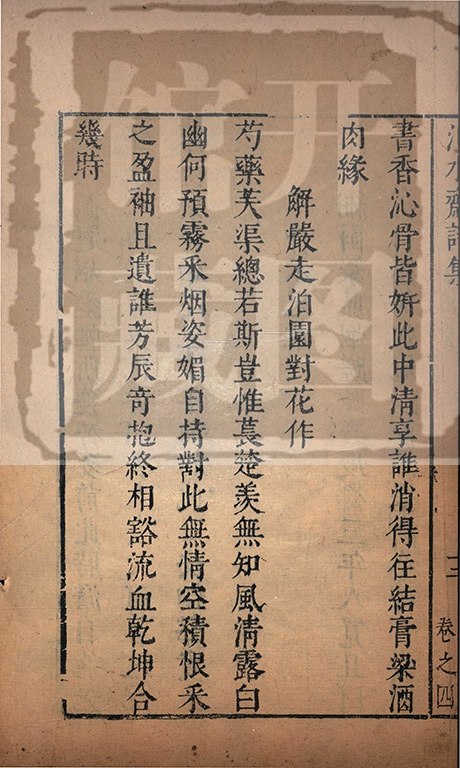 書香沁骨皆妍此中清享誰消得往結膏粱酒
肉緣
解嚴走泊園對花作
芍藥芙渠總若斯豈惟萇楚羨無知風清露白
幽何預霧釆烟姿媚自持對此無情空積恨釆
之盈袖且遺誰芳辰奇抱終相豁流血乾坤合
幾時
水齋詩集
卷之四
开图
馆藏